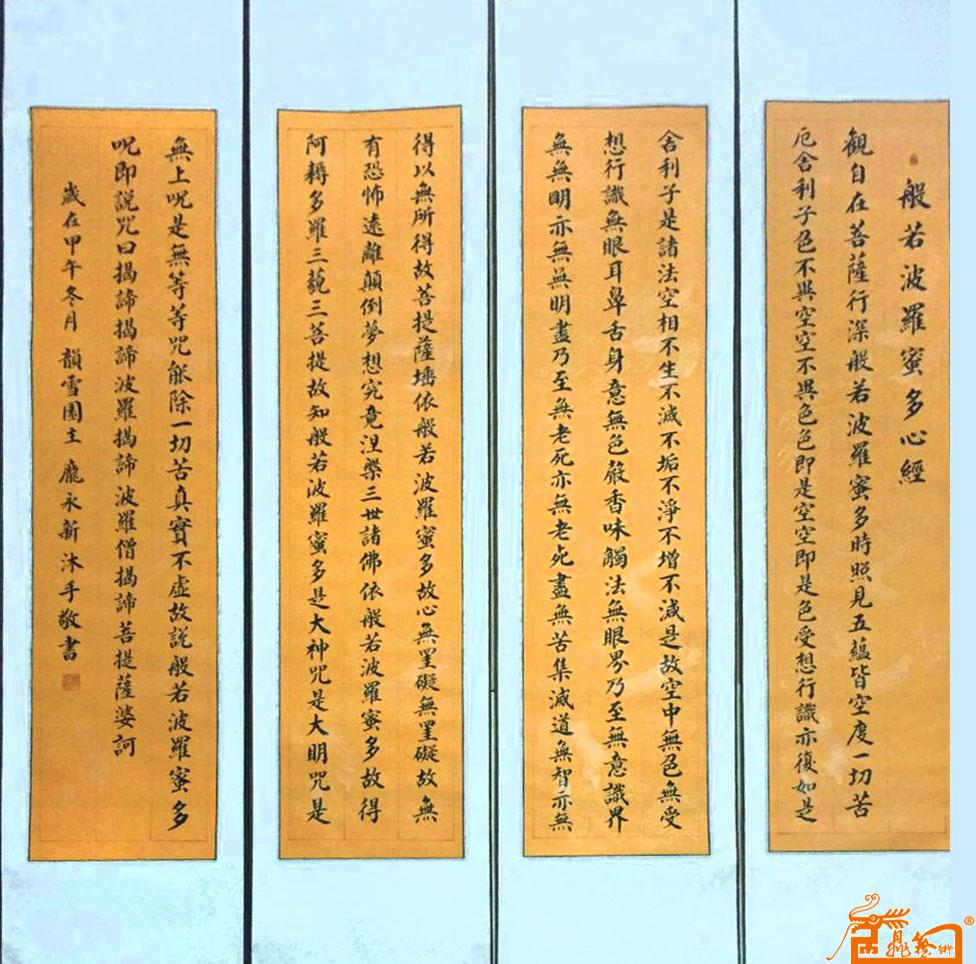 般若波羅蜜多心經
觀自在菩薩行深般若波羅蜜多時照見五蘊皆空度一切苦
厄舍利子色不異空空不異色色即是空空即是色受想行識亦復如是
舍利子是諸法空相不生不滅不垢不淨不增不減是故空中無色無受
想行識無眼耳鼻舌身意無色聲香味觸法無眼界乃至無意識界
無無明亦無無明盡乃至無老死亦無老死盡無苦集滅道無智亦無
得以無所得故菩提薩埵依般若波羅蜜多故心無罣礙無罣礙故無
有恐怖遠離顛倒夢想究竟涅槃三世諸佛依般若波羅蜜多故得
阿耨多羅三藐三菩提故知般若波羅蜜多是大神咒是大明咒是
無上呪是無等等咒能除一切苦真實不虛故說般若波羅蜜多
呪即説咒曰揭諦揭諦波羅揭諦波羅僧揭諦菩提薩婆訶
歲在甲午冬月韻雪園主龐永新沐手敬書